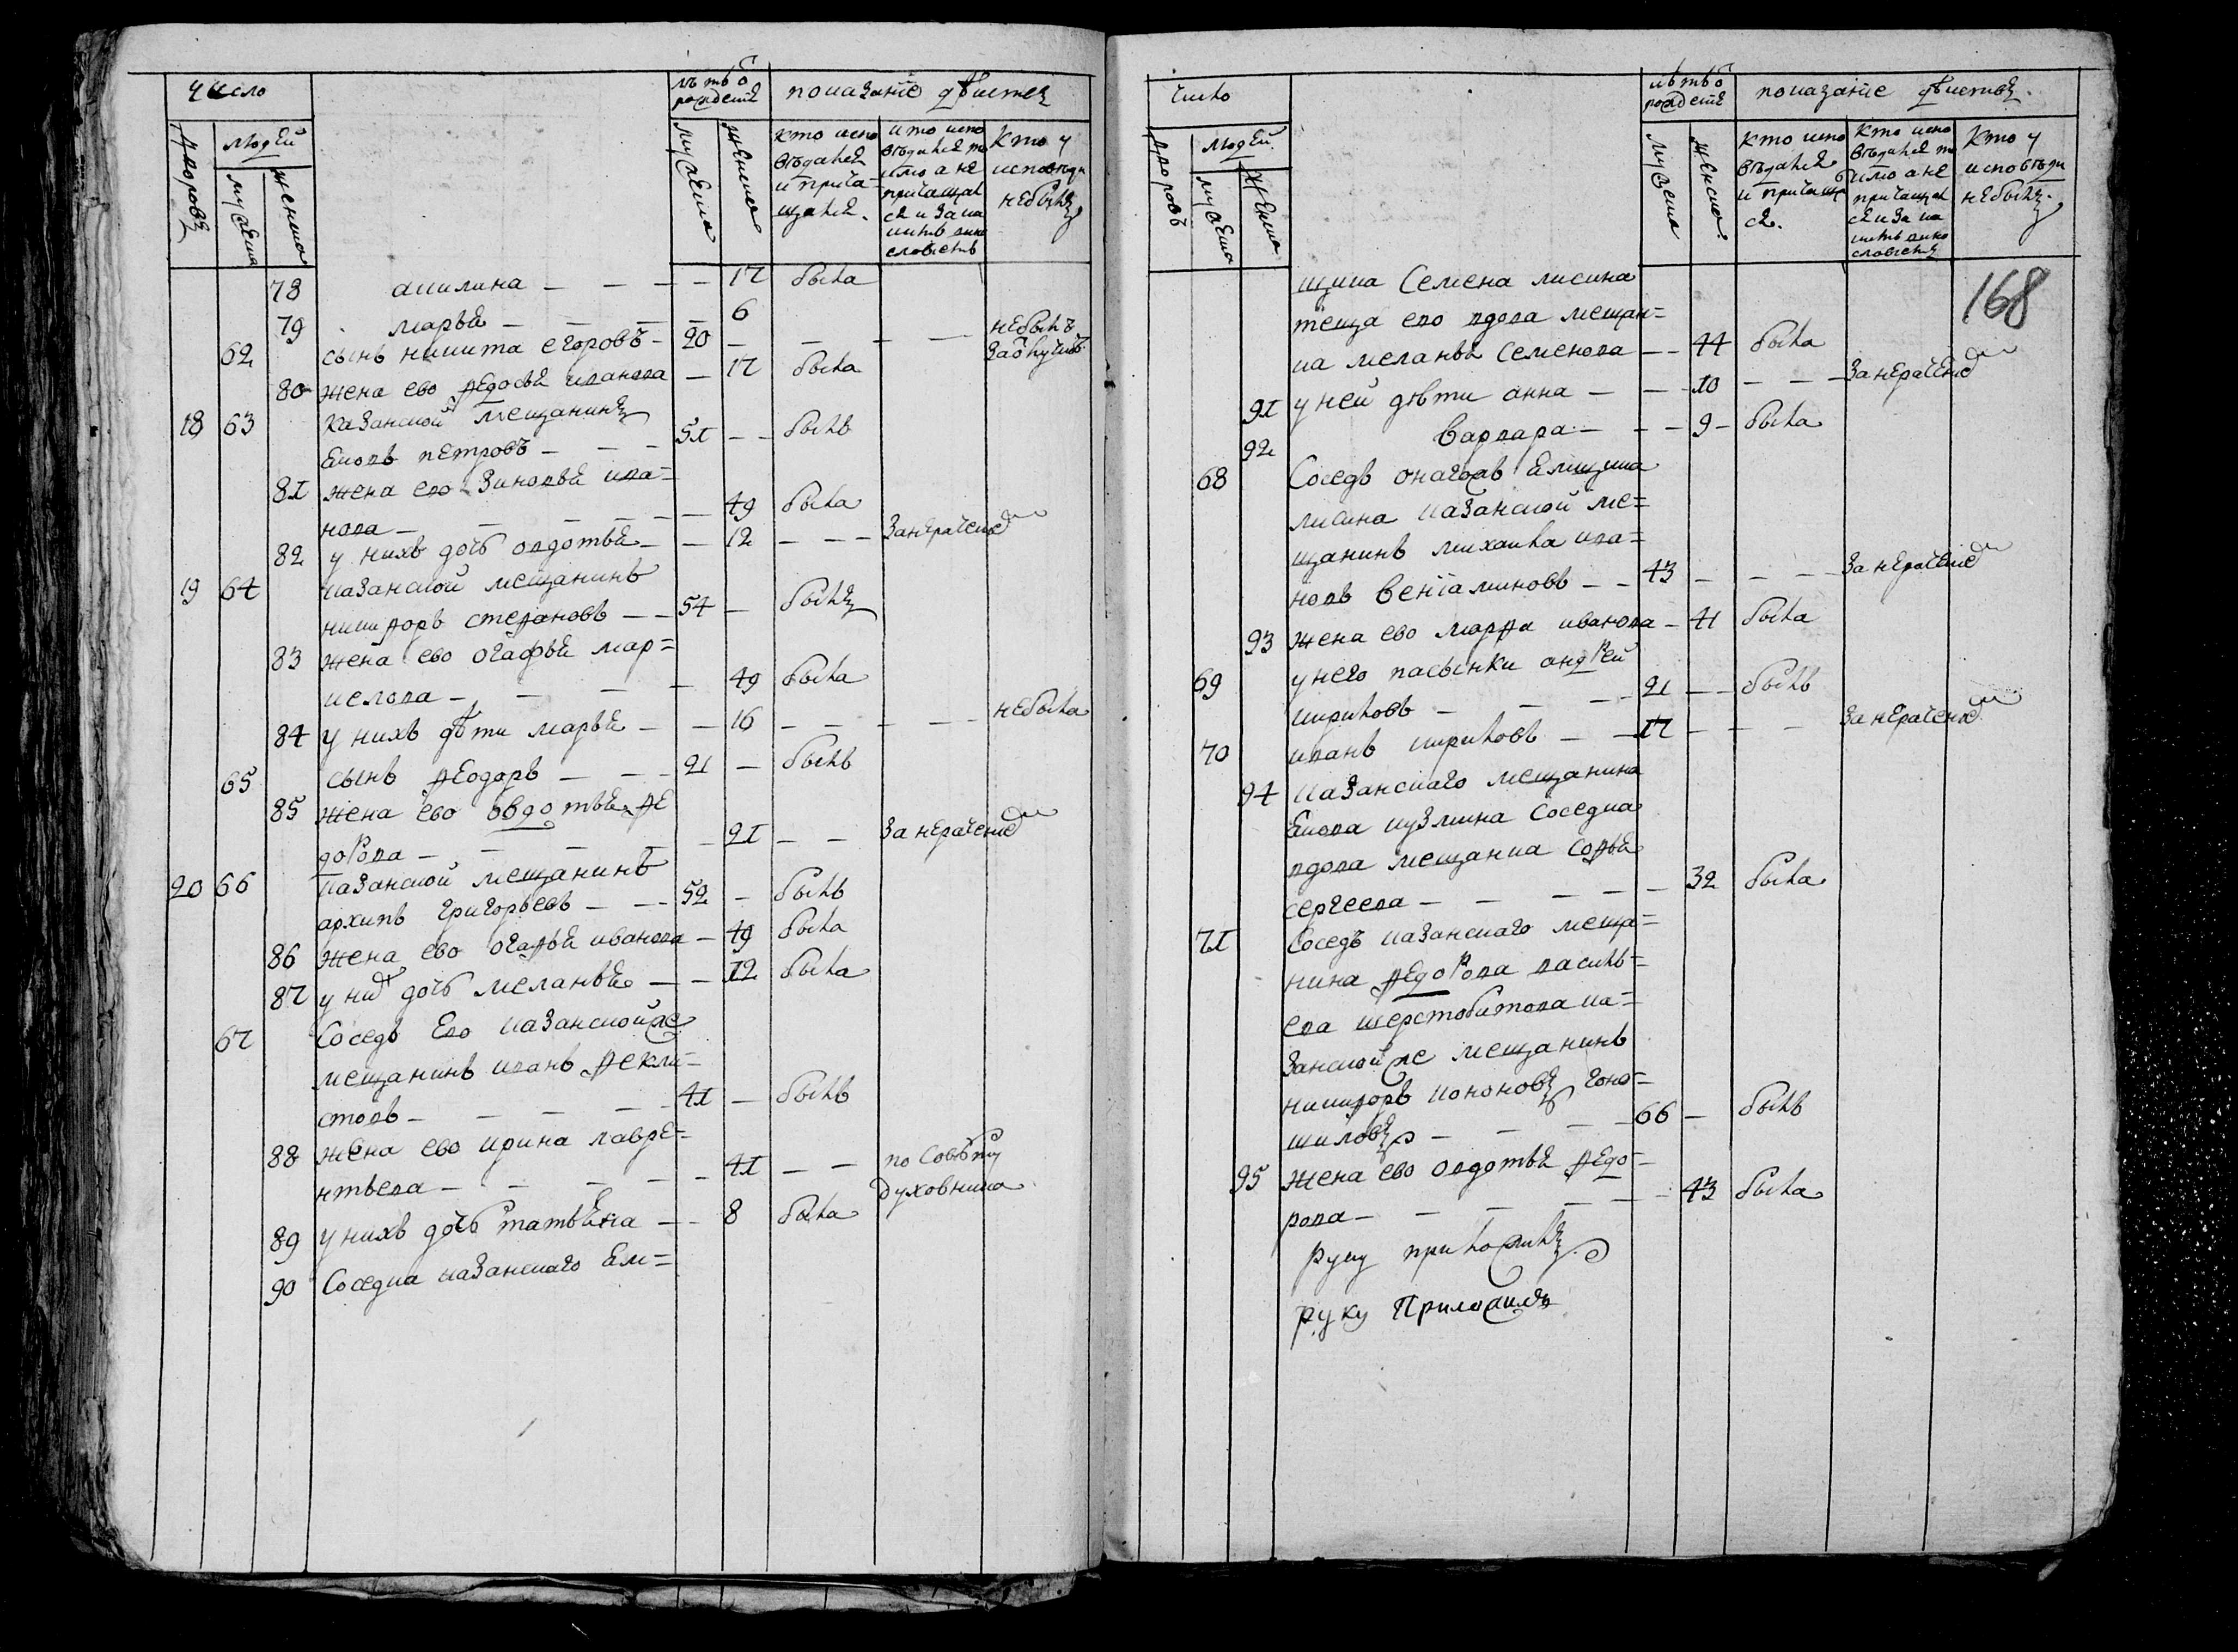 число
лѣтъ ѿ рождениѧ
показание дѣиствъ
дворовъ
людей
мужеска
женска
мужеска
женска
кто испо
вѣдался
и прича=
щался.
кто испо
вѣдался то
кмо а не
причащал
сѧ и за ка
кимъ вино
словиемъ
кто у
исповѣди
небылъ
78 акилина — — — — 17 была
79 марья — — — — 6
62 сынъ никита егоровъ — 20 — — — — небылъ
за ѿлучкою
80 жена ево федосья иванова — 17 была
18 63 казанской мещанинъ
яковъ петровъ — — — 51 — — былъ
81 жена ево зиновья ива=
нова — — — — — 49 была
82 у нихъ дочь авдотья — — 12 — — — за нерачениемъ
19 64 казанской мещанинъ
никифоръ стефановъ — — 54 — былъ
83 жена ево огафья мар=
келова — — — — 49 была
84 у нихъ дѣти марья — — 16 — — — — — небыла
65 сынъ феодоръ — — — 21 — былъ
85 жена ево овдотья фе
дорова — — — — — 21 — — за нерачениемъ
20 66 казанской мещанинъ
архипъ григорьевъ — — — 52 — былъ
86 жена ево огафья иванова — 49 была
87 у них дочь меланья — — 12 была
67 Соседъ ево казанской же
мещанинъ иванъ фекли=
стовъ — — — — — 41 — былъ
88 жена ево ирина лавре=
нтьева — — — — — 41 — — по совѣту
духовника
89 у нихъ дочь татьяна — — 8 была
90 Соседка казанскаго ям=
число
лѣтъ ѿ рождениѧ
показание дѣиствъ.
дворовъ
людей.
мужеска
женска
мужеска
женска.
кто испо
вѣдался
и причаща
сѧ.
кто испо
вѣдался то
кмо а не
причащал
сѧ и за ка
кимъ вино
словиемъ
кто у
исповѣди
небылъ.
168
щика Семена лисина
теща ево вдова мещан=
ка меланья Семенова — — 44 была
91 у ней дѣти анна — — — 10 — — — за нерачением
92 варвара — — — 9 — была
68 Соседъ онагожъ ямщика
лисина казанской ме=
щанинъ михаила ива=
новъ венiаминовъ — — 43 — — — — за нерачением
93 жена ево марфа иванова — 41 была
69 у него пасынки андрей
кириловъ — — — — 21 — — былъ
70 иванъ кириловъ — — 17 — — — за нерачением
94 казанскаго мещанина
якова кузмина соседка
вдова мещанка софья
сергеева — — — — — 32 была
71 Соседъ казанскаго меща=
нина федорова василь=
ева шерстобитова ка=
занской же мещанинъ
никифоръ кононовъ гоно=
шиловъ — — — — 66 — былъ
95 жена ево овдотья федо=
рова — — — — — — 43 была
руку приложилъ
руку Приложилъ